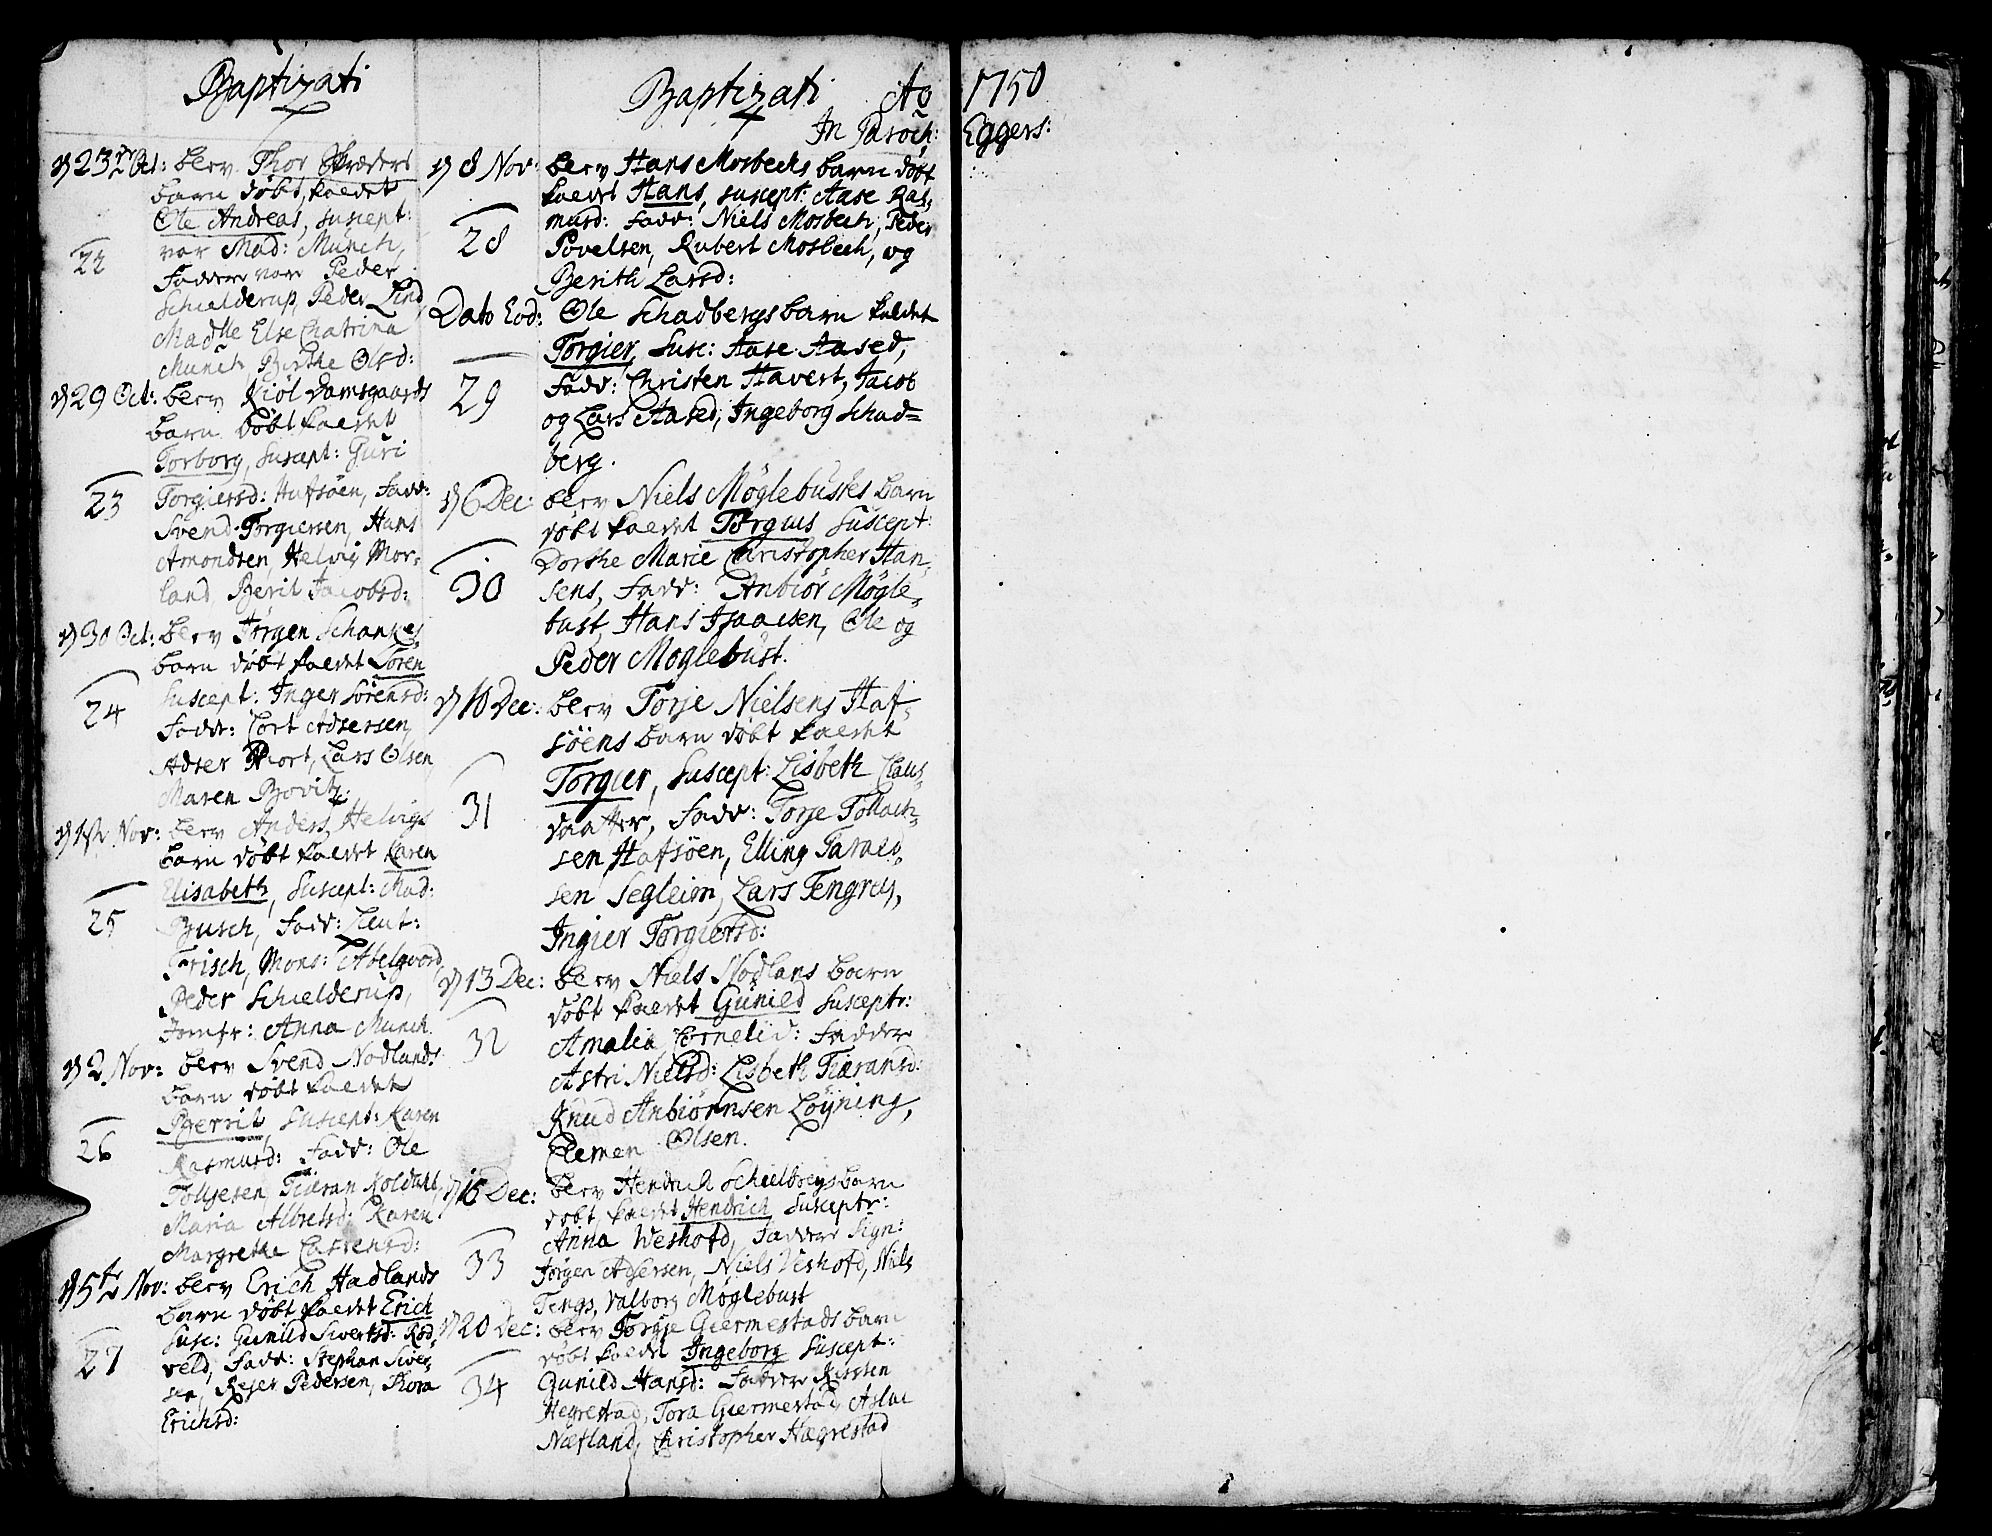 Baptizati
d 23de Oct: blev Thor Skræders
barn døbt, kaldet
Ole Andreas, suscept:
22 var Mad: Munch,
Faddre var Peder
Schielderup, Peder Lind,
Madlle Else Chatrina
Munch, Birthe Olsd:
d 29 Oct: blev Kiøl Damsgaards
barn døbt kaldet
Torborg, suscept: Guri
23 Torgiersd: Hafsøen, Fadd:
Svend Torgiersen, Hans
Amondsen, Helvig Mor-
land, Berit Jacobsd:
d 30 Oct: blev Jørgen Schankes
barn døbt kaldet Søren
Suscept: Inger Sørensd:
24 Fadd: Cort Adsersen,
Adser Hiort, Lars Olsen
Maren Bovitz:
d 1ste Nov: blev Anders Helvigs
barn døbt kaldet Karen
Elisabeth, Suscept: Mad:
25 Busch, Fadd: Leut:
Frisch, Mons: Abelgaard,
Peder Schielderup,
Jomfr: Anna Munch.
d 2 Nov: blev Svend Nodlands
barn døbt kaldet
Berrit, Suscept: Karen
26 Rasmusd: Fadd: Ole
Tollisesen, Tiæran Koldahl,
Maria Albretsd: Karen
Margrethe Castensd:
d 5te Nov: blev Erich Hadlands
barn døbt kaldet Erich
Susc: Gunild Sivertsd: Rød-
27 veld, Fadd: Stephan Siver-
sen, Rejer Pedersen, Thora
Erichsd:
Baptizati Ao 1750
In Paroch: Eggers:
d 8 Nov: blev Hans Mosbechs barn døbt
kaldet Hans, suscept: Aase Ras-
musd: Fadd: Niels Mosbech, Peder
28 Povelsen, Rubert Mosbech, og
Berith Larsd:
Dato Eod: Ole Schadbergs barn kaldet
Torgier, Susc: Aase Aased,
29 Fadd: Christen Havert, Jacob
og Lars Aased, Ingeborg Schad=
berg.
d 6 Dec: blev Niels Møglebustes barn
døbt kaldet Torgius Suscept:
Dorthe Marie Christopher Han-
30 sens, Fadd: Anbiør Møgle-
bust, Hans Isaacsen, Ole og
Peder Møglebust.
d 10 Dec: blev Torje Nielsens Haf-
søens barn døbt kaldet
Torgier, Suscept: Lisbeth Claus-
31 daatter, Fadd: Torje Tollach-
sen Hafsøen, Elling Tarald-
sen Segleim, Lars Tengres,
Ingier Torgiersd:
d 13 Dec: blev Niels Nodlans barn
døbt kaldet Gunild Susceptr:
32 Amalia Cornelid: Fadder
Astri Nielsd: Lisbeth Tiæransd:
Knud Anbiørnsen Løyning,
Clemen Olsen.
d 15 Dec: blev Hendrich Schielbreys barn
døbt, kaldet Hendrich Susceptr:
33 Anna Weshofd, Faddere Sign:
Jørgen Adsersen, Niels Veshofd, Niels
Tengs, Valborg Møglebust
d 20 Dec: blev Torgje Giermestads barn
døbt kaldt Ingeborg Suscept:
34 Gunild Hansd: Faddere Kirsten
Hegrestad, Tora Giermestad, Aslac
Nætland, Christopher Hægrestad